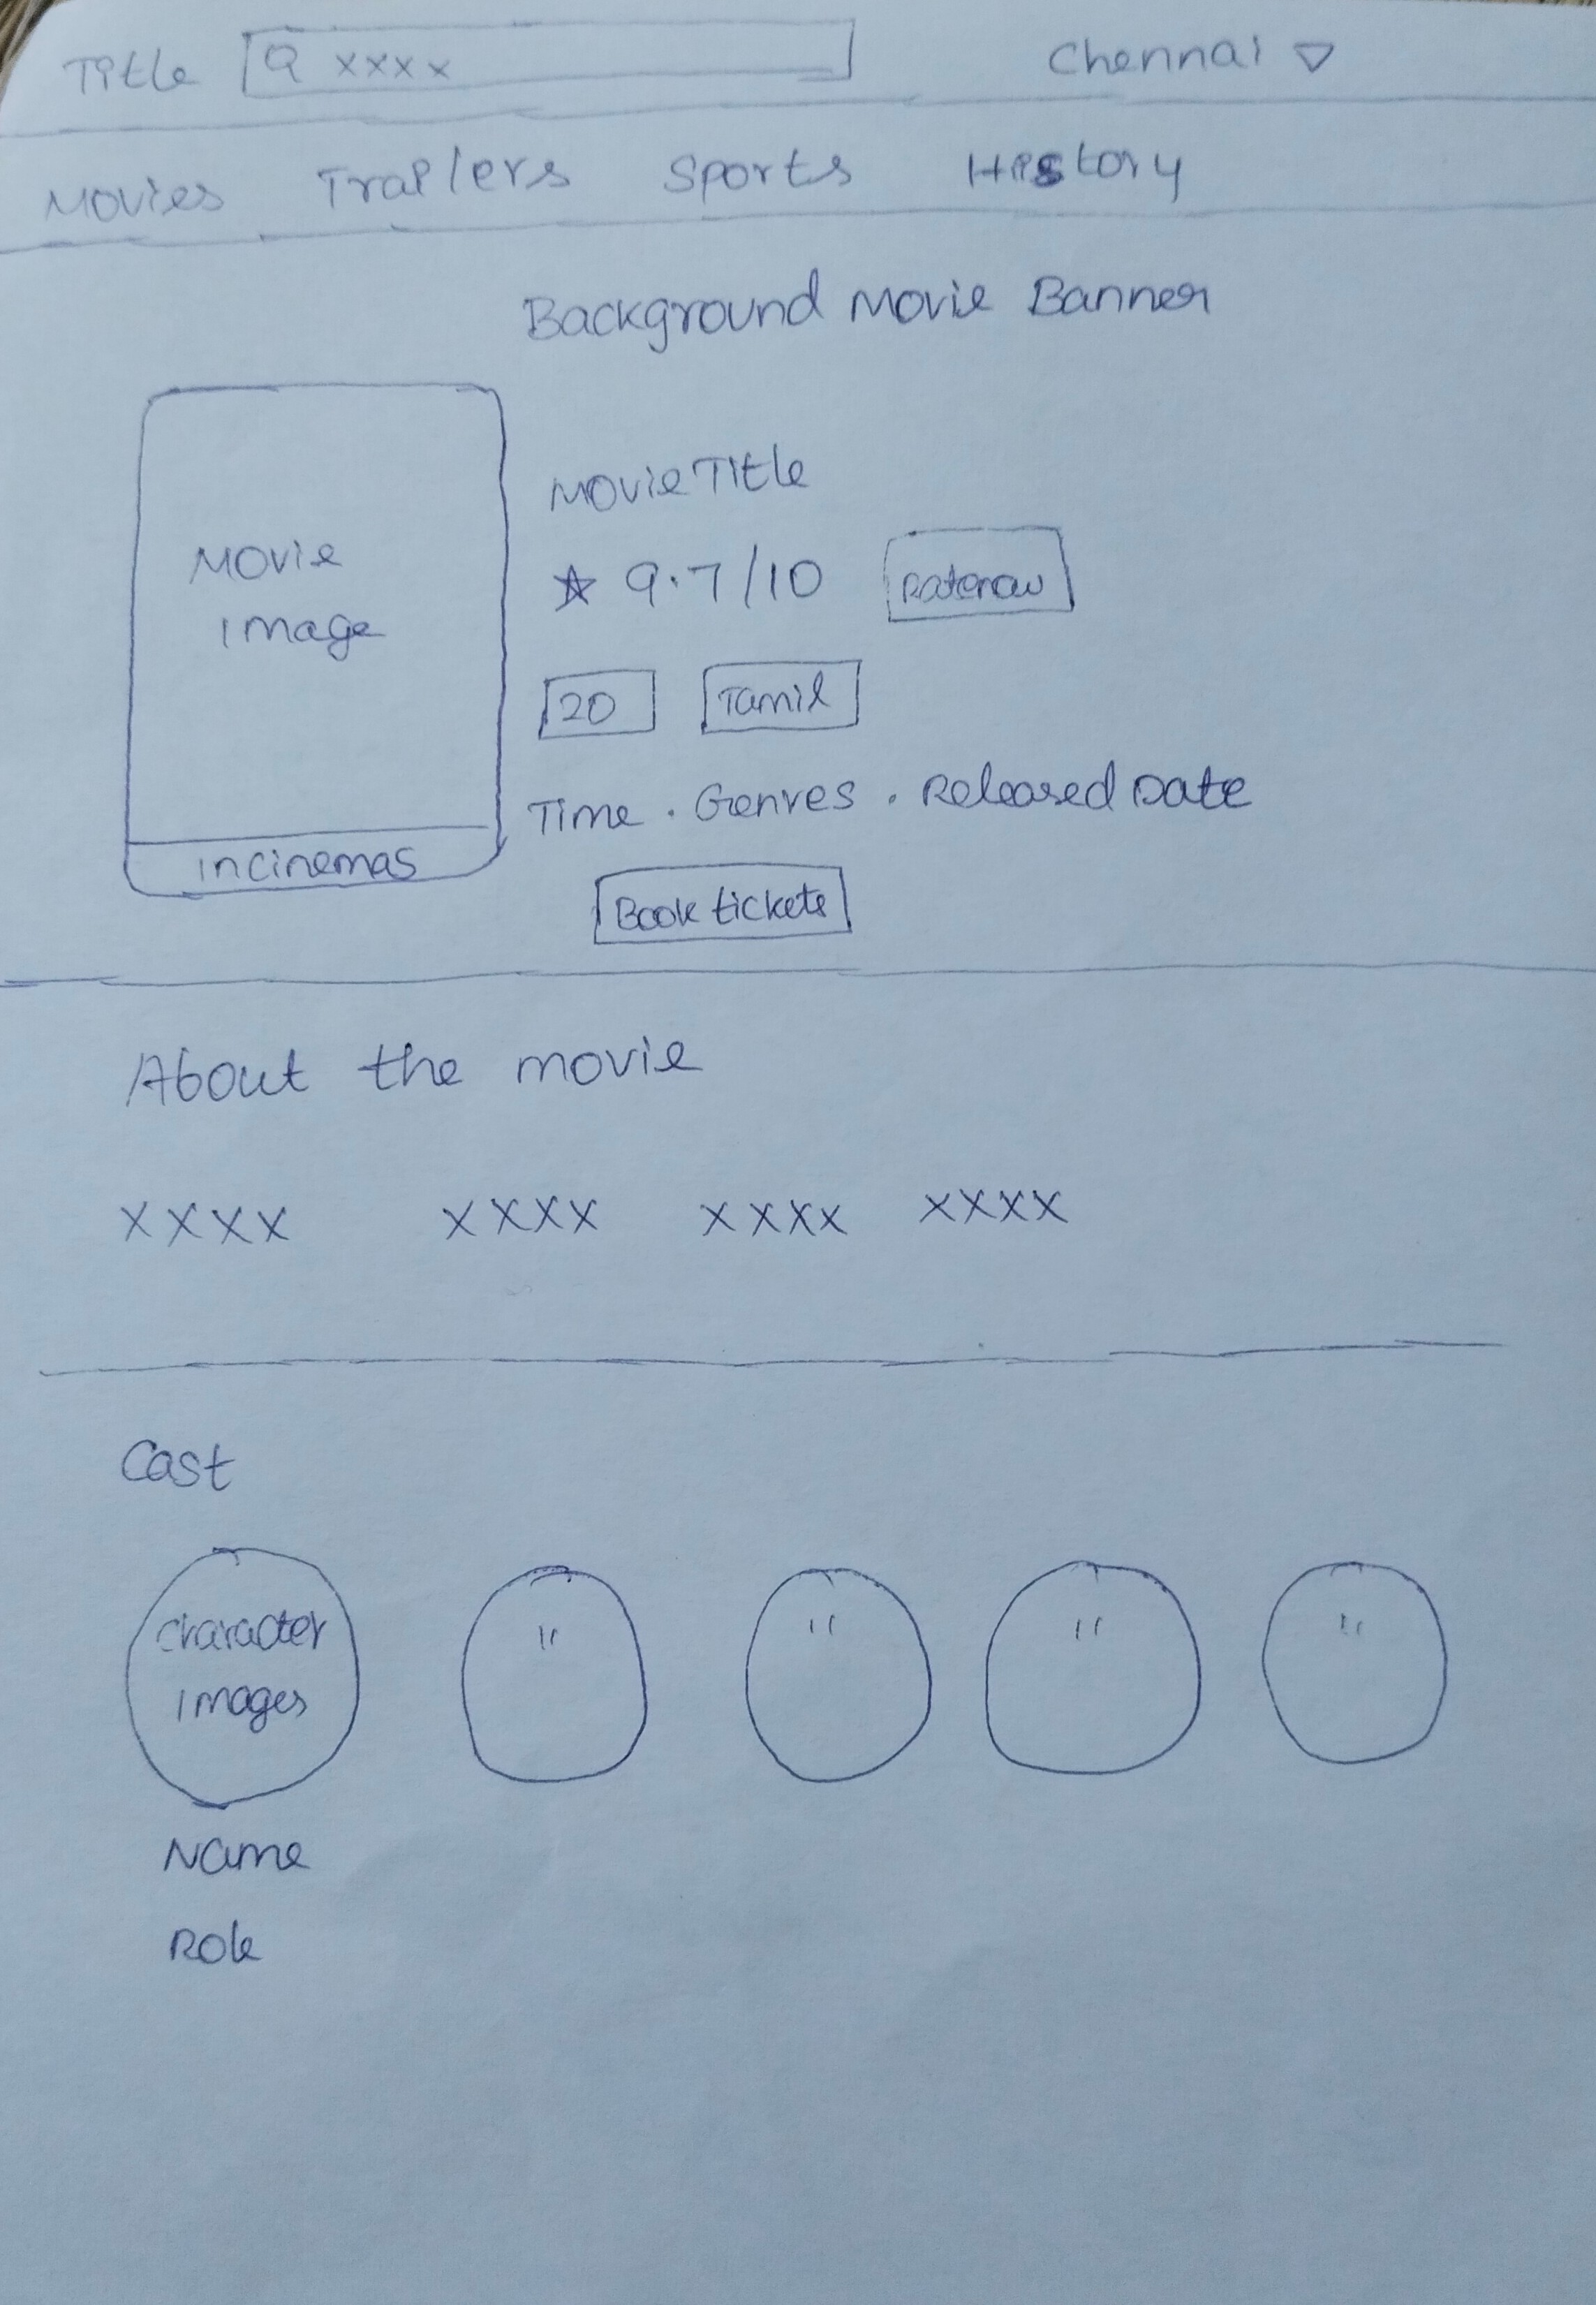 Title xxxx Chennai
Movies Trailers Sports History
Background Movie Banner
Movie Title
Movie
9.7/10 Ratenow
image
20 Tamil
Time . Genres . Released Date
incinemas
Book tickets
About the movie
xxxx xxxx xxxx xxxx
Cast
character " " " "
images
Name
Role